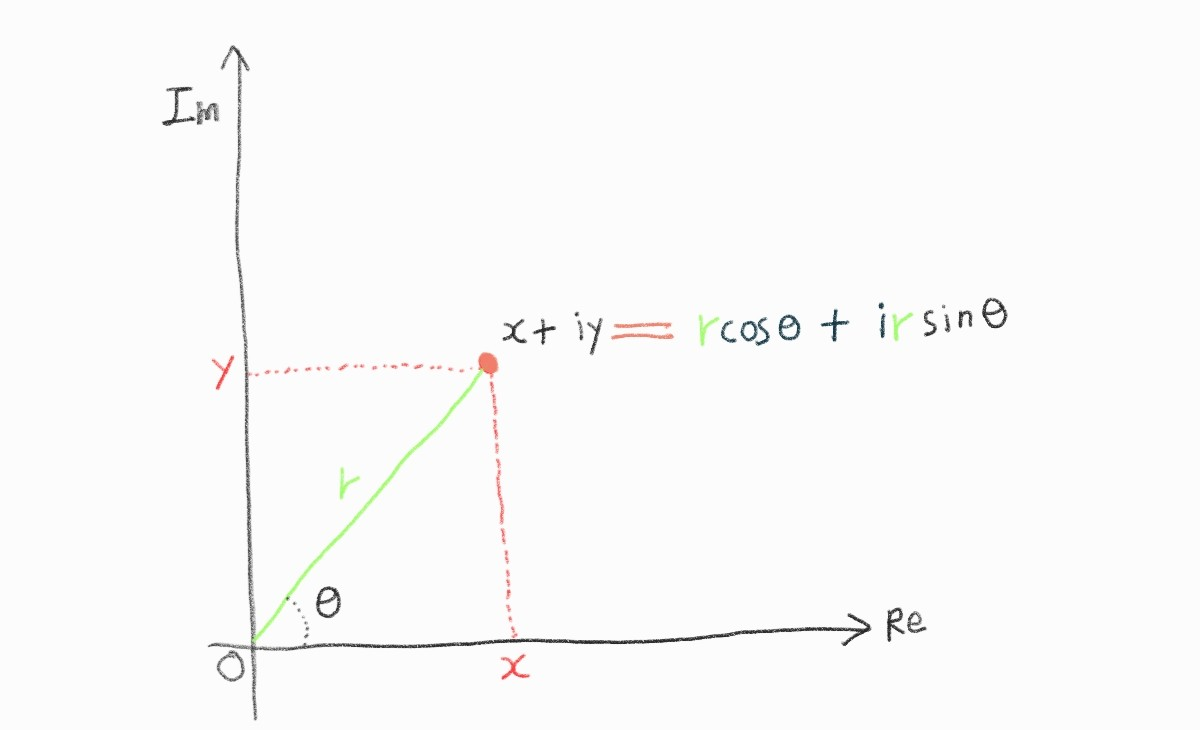 Im
x + iy = r cosθ + i r sinθ
y
r
θ
Re
O
x